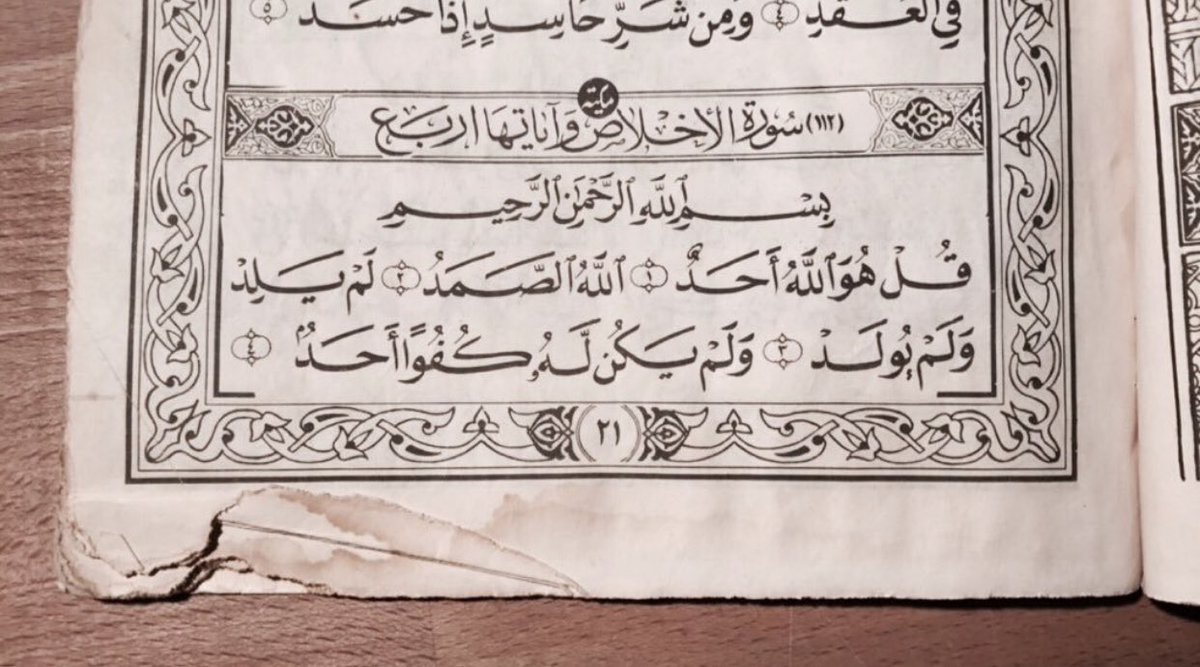 فِي الْعُقَدِ ٤ وَمِن شَرِّ حَاسِدٍ إِذَا حَسَدَ ٥
مكية
(١١٢) سُورَة الأخلاص وَآياتهَا اربَع
بِسْمِ ٱللَّهِ ٱلرَّحْمَٰنِ ٱلرَّحِيمِ
قُلْ هُوَ ٱللَّهُ أَحَدٌ ١ ٱللَّهُ ٱلصَّمَدُ ٢ لَمْ يَلِدْ
وَلَمْ يُولَدْ ٣ وَلَمْ يَكُن لَّهُۥ كُفُوًا أَحَدٌۢ ٤
٢١